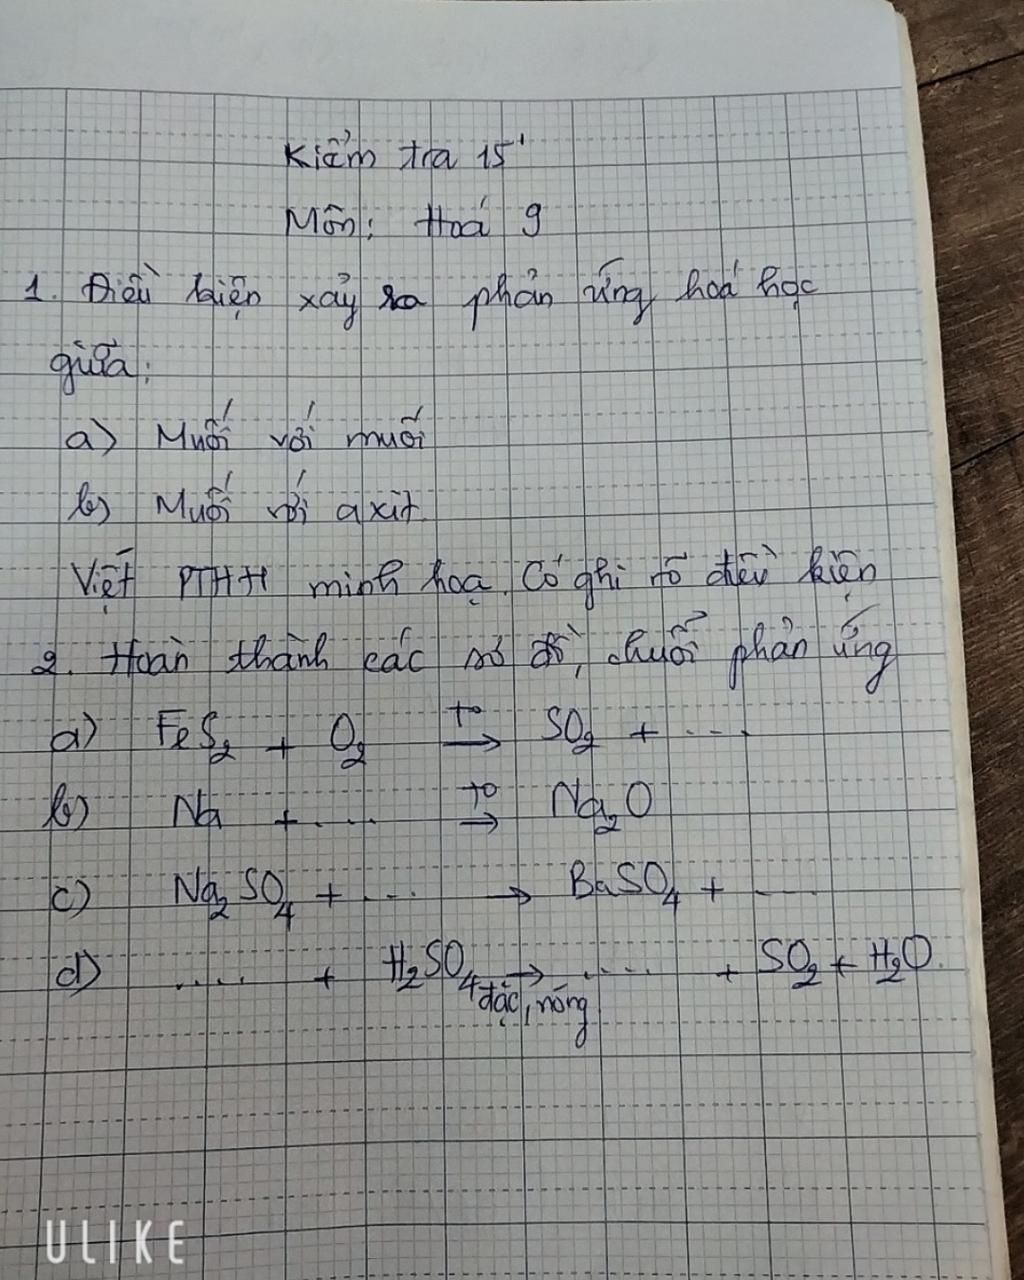 Kiểm tra 15'
Môn: Hoá 9
1. Điều kiện xảy ra phản ứng hoá học
giữa:
a) Muối với muối
b) Muối với axit.
Viết PTHH minh hoạ. Có ghi rõ điều kiện
2. Hoàn thành các sơ đồ, chuỗi phản ứng
a) FeS₂ + O₂ →(t°) SO₂ + ....
b) Na + .... →(t°) Na₂O
c) Na₂SO₄ + .... → BaSO₄ + ....
d) ..... + H₂SO₄ đặc, nóng → ..... + SO₂ + H₂O.
ULIKE